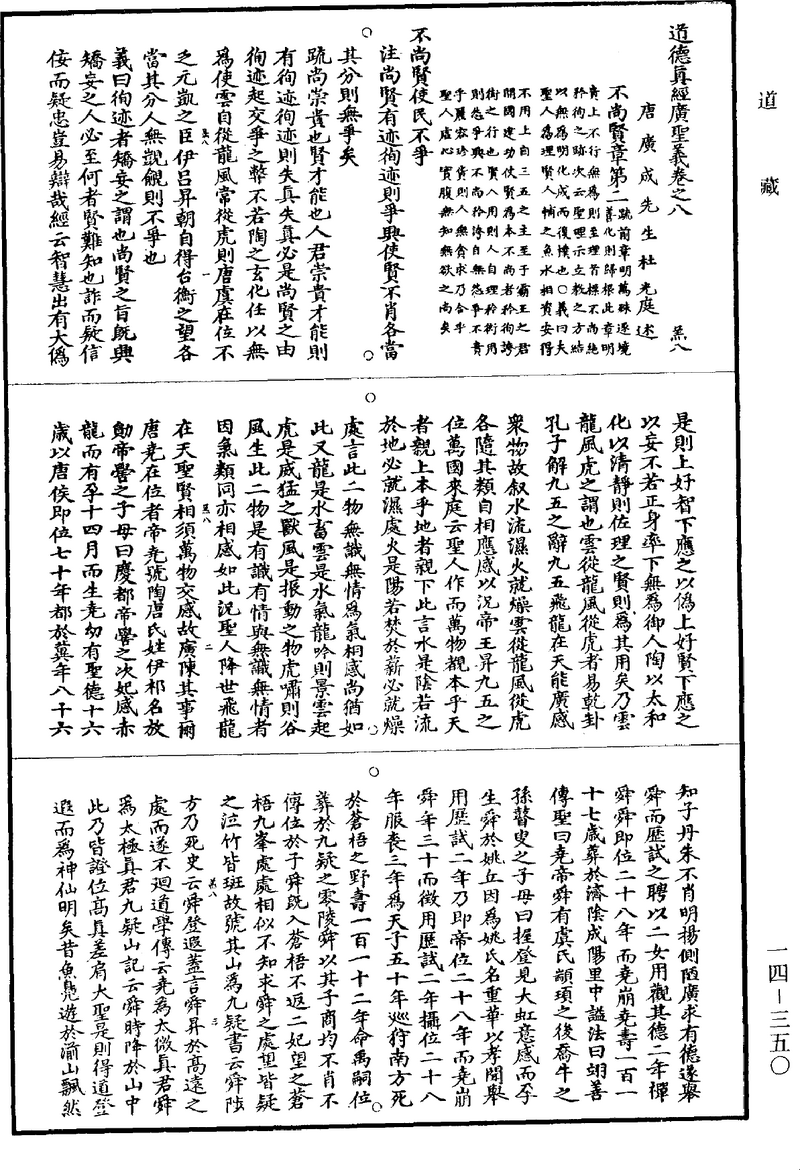 道德真經廣聖義卷之八
羔八
唐廣成先生杜光庭述
不尚賢章第二
疏前章明萬殊逐境
善化則歸根此章明
貴上不行無為則至理菩標不尚絕
矜徇之跡次云聖理示立教之方結
以無為明化成而復樸也〇義曰夫
聖人為理賢人輔之魚水相資安得
不用上自三五之主至于霸王之君
開國建功使賢為本不尚者矜徇誇
衒之行也賢人用則人自理矜衒用
則怨爭興不尚矜誇自無怨爭不貴
乎麗容珍貨則人無貪求乃合乎
聖人虛心實腹無知無欲之尚矣
不尚賢使民不爭
注尚賢有迹徇迹則爭興使賢不肖各當
其分則無爭矣
疏尚崇貴也賢才能也人君崇貴才能則
有徇迹徇迹則失真失真必是尚賢之由
徇迹起交爭之弊不若陶之玄化任以無
為使雲自從龍風常從虎則唐虞在位不
羔八
一
乏元凱之臣伊呂昇朝自得台衡之望各
當其分人無覬覦則不爭也
義曰徇迹者矯妄之謂也尚賢之旨既興
矯妄之人必至何者賢難知也詐而疑信
佞而疑忠豈易辯哉經云智慧出有大偽
是則上好智下應之以偽上好賢下應之
以妄不若正身率下無為御人陶以太和
化以清靜則佐理之賢則為其用矣乃雲
龍風虎之謂也雲從龍風從虎者易乾卦
孔子解九五之辭九五飛龍在天能廣感
眾物故叙水流濕火就燥雲從龍風從虎
各隨其類自相應感以況帝王昇九五之
位萬國來庭云聖人作而萬物覩本乎天
者親上本乎地者親下此言水是陰若流
於地必就濕處火是陽若焚於薪必就燥
處言此二物無識無情為氣相感尚猶如
此又龍是水畜雲是水氣龍吟則景雲起
虎是威猛之獸風是振動之物虎嘯則谷
風生此二物是有識有情與無識無情者
因氣類同亦相感如此況聖人降世飛龍
羔八
二
在天聖賢相須萬物交感故廣陳其事爾
唐堯在位者帝堯號陶唐氏姓伊祁名放
勛帝嚳之子母曰慶都帝嚳之次妃感赤
龍而有孕十四月而生堯幼有聖德十六
歲以唐侯即位七十年都於冀年八十六
知子丹朱不肖明揚側陋廣求有德遂舉
舜而歷試之聘以二女用觀其德二年禪
舜舜即位二十八年而堯崩堯壽一百一
十七歲葬於濟陰成陽里中諡法曰翊善
傳聖曰堯帝舜有虞氏顓頊之後喬牛之
孫瞽叟之子母曰握登見大虹意感而孕
生舜於姚丘因為姚氏名重華以孝聞舉
用歷試二年乃即帝位二十八年而堯崩
舜年三十而徵用歷試二年攝位二十八
年服喪三年為天子五十年巡狩南方死
於蒼梧之野壽一百一十二年命禹嗣位
葬於九疑之零陵舜以其子商均不肖不
傳位於子舜既入蒼梧不返二妃望之蒼
梧九峯處處相似不知求舜之處望皆疑
之泣竹皆斑故號其山為九疑書云舜陟
羔八
三
方乃死史云舜登遐蓋言舜昇於高遠之
處而遂不廻道學傳云堯為太微真君舜
為太極真君九疑山記云舜時降於山中
此乃皆證位高真差肩大聖是則得道登
遐而為神仙明矣昔魚鳧遊於湔山飄然
道藏
一四—三五〇